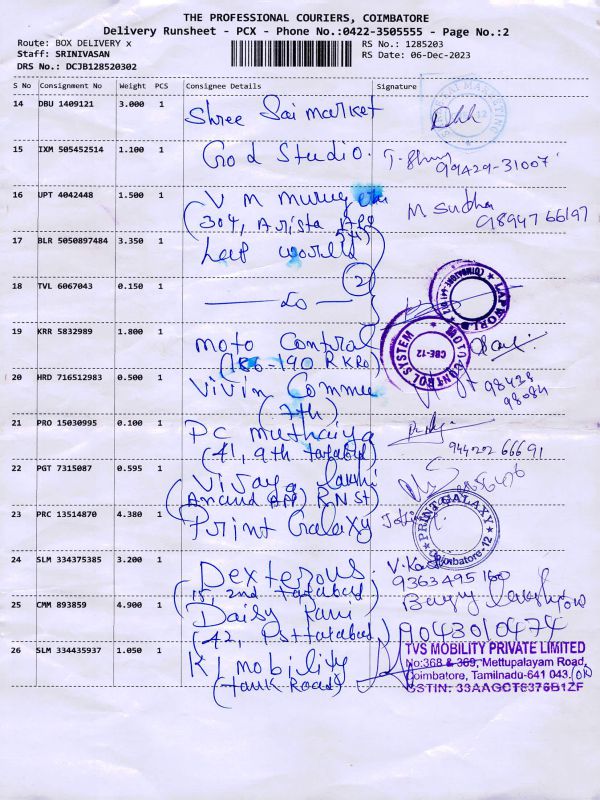 THE PROFESSIONAL COURIERS, COIMBATORE
Delivery Runsheet - PCX - Phone No.:0422-3505555 - Page No.:2
Route: BOX DELIVERY x
RS No.: 1285203
Staff: SRINIVASAN
RS Date: 06-Dec-2023
DRS No.: DCJB128520302
S No Consignment No Weight PCS Consignee Details Signature
14 DBU 1409121 3.000 1 Shree Sai market
15 IXM 505452514 1.100 1 God Studio. 99429-31007
16 UPT 4042448 1.500 1 V M
(304, Arista
M Sudha
98947 66197
17 BLR 5050897484 3.350 1 Lap world
18 TVL 6067043 0.150 1 Do 2
LAP WORLD
19 KRR 5832989 1.800 1 Moto Control
(186-190 RKRD)
MOTO CONTROL SYSTEM
CBE-12
20 HRD 716512983 0.500 1 Vivin
(7th)
98428
98084
21 PRO 15030995 0.100 1 PC muthaiya
(41, 9th Tatabad)
22 PGT 7315087 0.595 1 Vijaya
(Anand APP) RN St)
23 PRC 13514870 4.380 1 Print Galaxy
PRINT GALAXY
Coimbatore-12
24 SLM 334375385 3.200 1 Dexterous.
(15, 2nd Tatabad)
9363495160
25 CMM 893859 4.900 1 Daisy Rani
(42, Tatabad)
9043010474
26 SLM 334435937 1.050 1 KJ mobility
(Tank Road)
TVS MOBILITY PRIVATE LIMITED
No:368 & 369, Mettupalayam Road,
Coimbatore, Tamilnadu-641 043.
GSTIN: 33AAGCT6376B1ZF